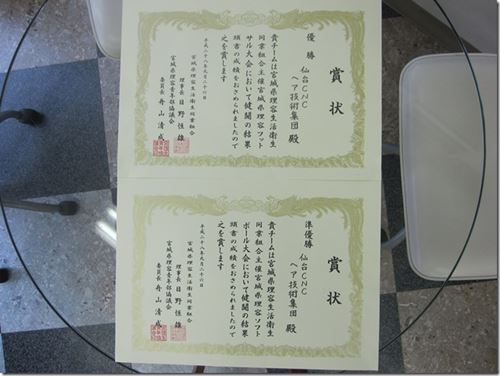 賞状
優勝
仙台CNC
ヘア技術集団 殿
貴チームは宮城県理容生活衛生
同業組合主催宮城県理容フット
サル大会において健闘の結果
頭書の成績をおさめられましたので
之を賞します
平成二十八年九月二十六日
宮城県理容生活衛生同業組合
理事長 日野恒雄
宮城県理容青年部協議会
委員長 舟山清成
賞状
準優勝
仙台CNC
ヘア技術集団 殿
貴チームは宮城県理容生活衛生
同業組合主催宮城県理容ソフト
ボール大会において健闘の結果
頭書の成績をおさめられましたので
之を賞します
平成二十八年九月二十六日
宮城県理容生活衛生同業組合
理事長 日野恒雄
宮城県理容青年部協議会
委員長 舟山清成